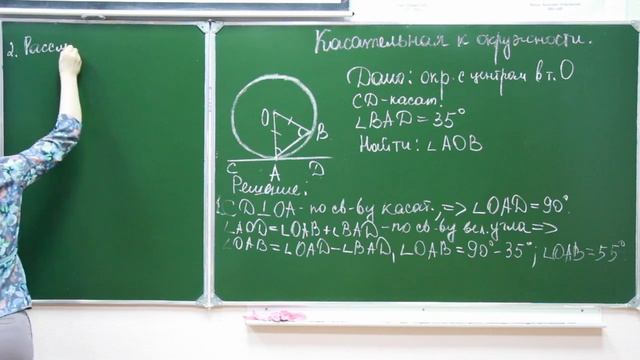 2. Рассм
Касательная к окружности.
Дано: окр. с центром в т. О
CD-касат.
∠BAD = 35°
Найти: ∠AOB
O
B
C
A
D
Решение:
1. CD⊥OA - по св-ву касат., => ∠OAD = 90°.
∠AOD = ∠OAB + ∠BAD - по св-ву вел. угла =>
∠OAB = ∠OAD - ∠BAD, ∠OAB = 90° - 35°; ∠OAB = 55°.